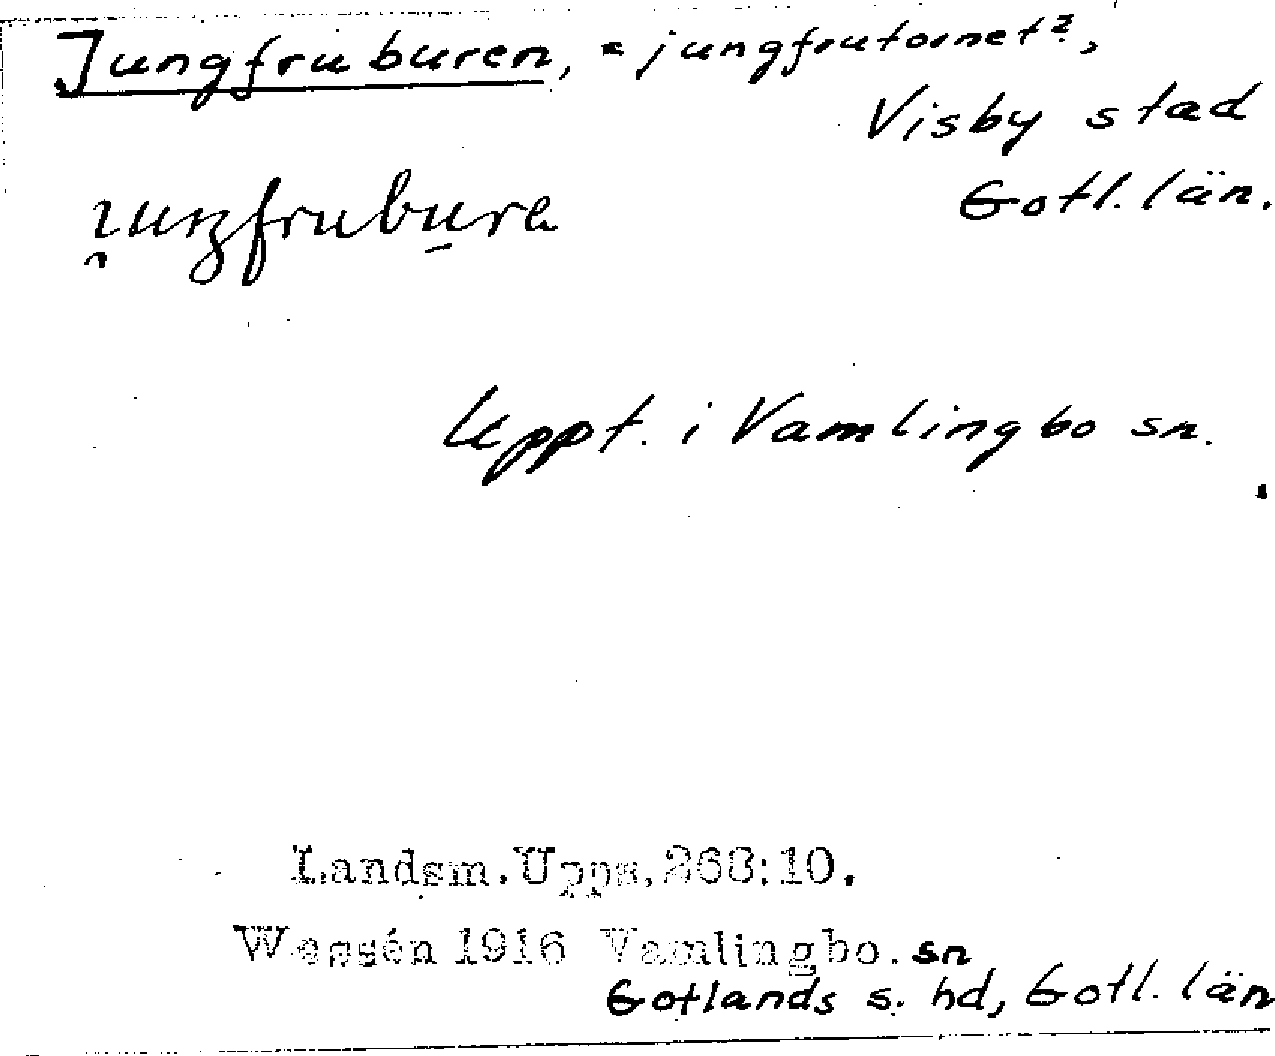 Jungfruburen, = jungfrutornet?,
Visby stad
Gotl. län.
Uppt. i Vamlingbo sn.
Landsm. Upps. 268:10.
Wessén 1916 Vamlingbo. sn
Gotlands s. hd, Gotl. län